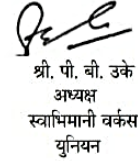 श्री. पी. बी. उके
अध्यक्ष
स्वाभिमानी वर्कस
युनियन